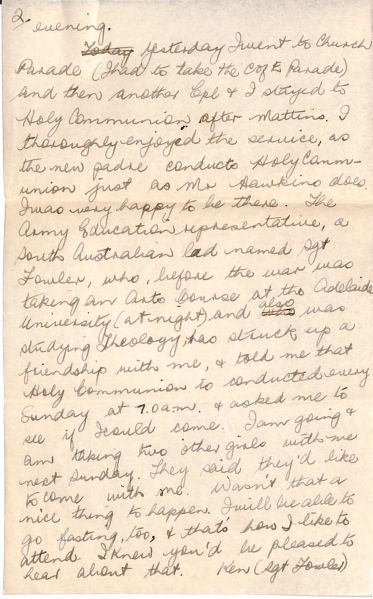 2.
evening.
Today yesterday I went to Church
Parade (I had to take the Coy to Parade)
and then another Cpl & I stayed to
Holy Communion after Mattins. I
thoroughly enjoyed the service, as
the new padre conducts Holy Comm-
union just as Mr Hawkins does.
I was very happy to be there. The
Army Education representative, a
South Australian lad named Sgt
Fowler, who, before the war was
taking an Arts Course at the Adelaide
University (at night) and also was
studying Theology, has struck up a
friendship with me, & told me that
Holy Communion is conducted every
Sunday at 7.0 a.m. & asked me to
see if I could come. I am going &
am taking two other girls with me
next Sunday. They said they'd like
to come with me. Wasn't that a
nice thing to happen. I will be able to
go fasting, too, & that's how I like to
attend. I knew you'd be pleased to
hear about that. Ken (Sgt Fowler)